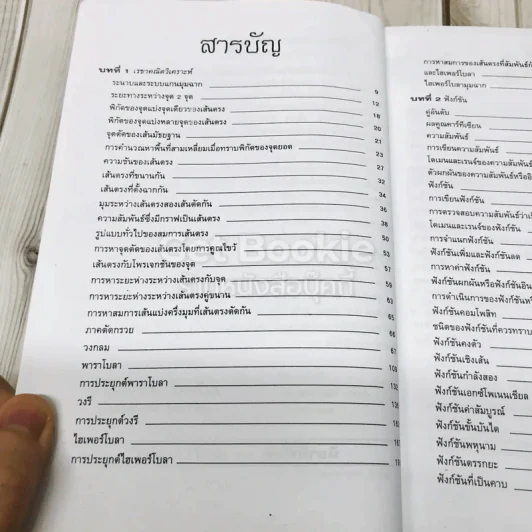 สารบัญ
บทที่ 1 เรขาคณิตวิเคราะห์
ระนาบและระบบแกนมุมฉาก 9
ระยะทางระหว่างจุด 2 จุด 12
พิกัดของจุดแบ่งจุดเดียวของเส้นตรง 18
พิกัดของจุดแบ่งหลายจุดของเส้นตรง 20
จุดตัดของเส้นมัธยฐาน 21
การคำนวณหาพื้นที่สามเหลี่ยมเมื่อทราบพิกัดของจุดยอด 23
ความชันของเส้นตรง 27
เส้นตรงที่ขนานกัน 32
เส้นตรงที่ตั้งฉากกัน 34
มุมระหว่างเส้นตรงสองเส้นตัดกัน 36
ความสัมพันธ์ซึ่งมีกราฟเป็นเส้นตรง 38
รูปแบบทั่วไปของสมการเส้นตรง 50
การหาจุดตัดของเส้นตรงโดยการคูณไขว้ 53
เส้นตรงกับโพรเจกชันของจุด
การหาระยะห่างระหว่างเส้นตรงกับจุด 59
การหาระยะห่างระหว่างเส้นตรงคู่ขนาน 63
การหาสมการเส้นแบ่งครึ่งมุมที่เส้นตรงตัดกัน 65
ภาคตัดกรวย 66
วงกลม 67
พาราโบลา
การประยุกต์พาราโบลา
วงรี
การประยุกต์วงรี
ไฮเพอร์โบลา
การประยุกต์ไฮเพอร์โบลา
การหาสมการของเส้นตรงที่สัมพันธ์กับ
และไฮเพอร์โบลา
ไฮเพอร์โบลามุมฉาก
บทที่ 2 ฟังก์ชัน
คู่อันดับ
ผลคูณคาร์ทีเซียน
ความสัมพันธ์
การเขียนความสัมพันธ์
โดเมนและเรนจ์ของความสัมพันธ์
ตัวผกผันของความสัมพันธ์หรืออิน
ฟังก์ชัน
การเขียนฟังก์ชัน
การตรวจสอบความสัมพันธ์ว่าเป็
โดเมนและเรนจ์ของฟังก์ชัน
การจำแนกฟังก์ชัน
ฟังก์ชันเพิ่มและฟังก์ชันลด
การหาค่าฟังก์ชัน
ฟังก์ชันผกผันหรือฟังก์ชันอิน
การดำเนินการของฟังก์ชันห
ฟังก์ชันคอมโพสิท
ชนิดของฟังก์ชันที่ควรทราบ
ฟังก์ชันคงตัว
ฟังก์ชันเชิงเส้น
ฟังก์ชันกำลังสอง
ฟังก์ชันเอกซ์โพเนนเชียล
ฟังก์ชันค่าสัมบูรณ์
ฟังก์ชันขั้นบันได
ฟังก์ชันพหุนาม
ฟังก์ชันตรรกยะ
ฟังก์ชันที่เป็นคาบ
Bookie